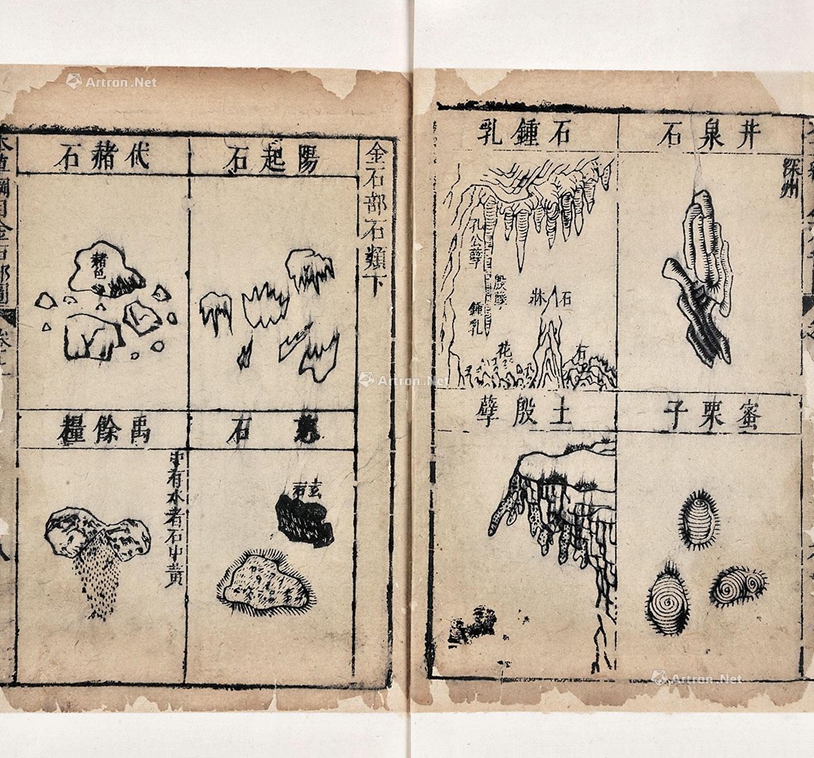 井泉石
深州
石鍾乳
孔公孽
殷孽
鍾乳
石牀
花
蜜栗子
土殷孽
金石部石類下
陽起石
代赭石
赭色
石
玄石
禹餘糧
中有水者石中黃
本草綱目金石部圖
Artron.Net
Artron.Net
Artron.Net